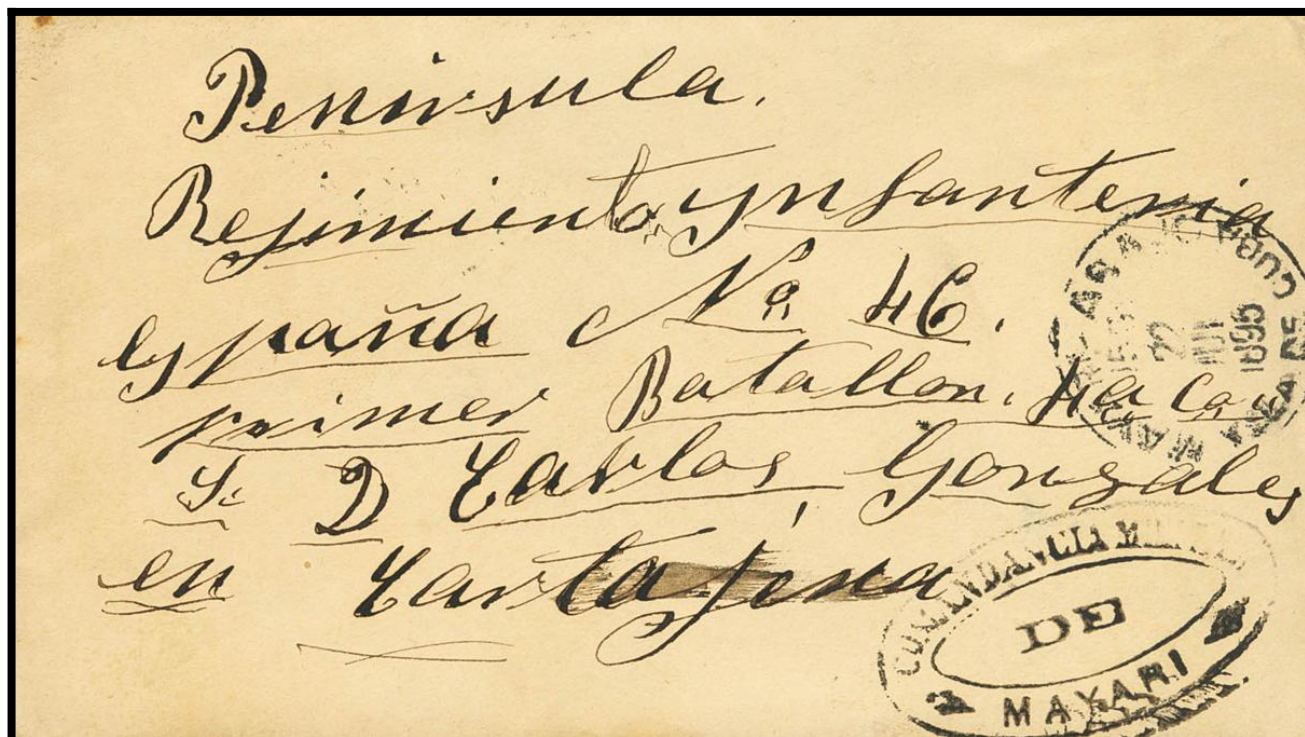 Peninsula.
Rejimiento ynfanteria
españa Nº 46.
primer Batallon. 4a Ca
S. D Carlos Gonzales
en Cartajena
CUBA
1895
COMANDANCIA
DE
MAYARI